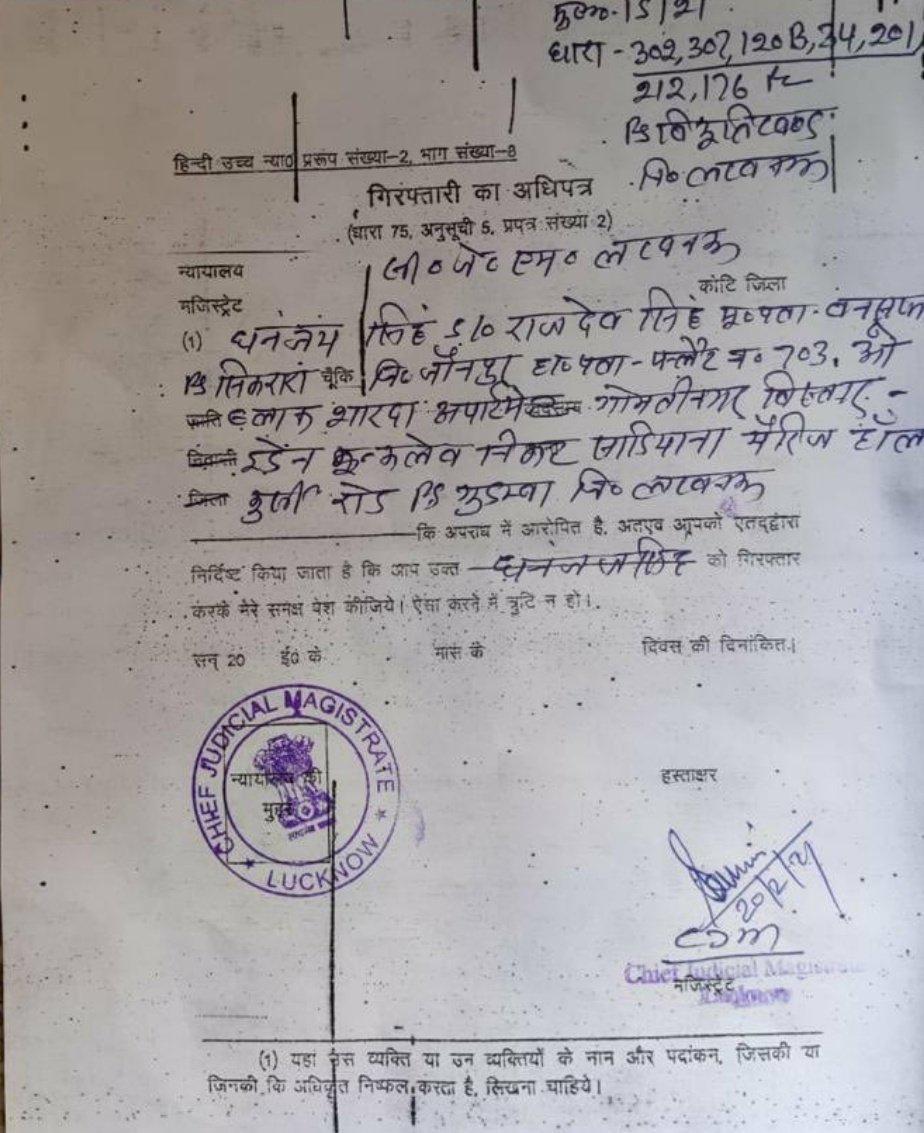 मु०अ०-15/21
धारा - 302, 307, 120B, 34, 201,
212, 176 IPC
PS विभूतिखण्ड
जि० लखनऊ
हिन्दी उच्च न्या० प्ररूप संख्या–2, भाग संख्या–8
गिरफ्तारी का अधिपत्र
(धारा 75, अनुसूची 5, प्रपत्र संख्या 2)
न्यायालय सी० जे० एम० लखनऊ
मजिस्ट्रेट कोटि जिला
(1) धनंजय सिंह S/o राजदेव सिंह मू०पता-वनसफा
PS सिकरारा चूँकि जि० जौनपुर हा०पता-फ्लैट न० 703, ओ
जाति ब्लाक शारदा अपार्टमेन्ट गोमतीनगर विस्तार -
निवासी ईडेन इन्कलेव निकट साडियाना मैरिज हॉल
जिला कुर्सी रोड PS गुडम्बा जि० लखनऊ
कि अपराध में आरोपित है, अतएव आपको एतद्द्वारा
निर्दिष्ट किया जाता है कि आप उक्त धनंजय सिंह को गिरफ्तार
करके मेरे समक्ष पेश कीजिये। ऐसा करने में त्रुटि न हो।
सन् 20 ई0 के मास के दिवस की दिनांकित।
CHIEF JUDICIAL MAGISTRATE
LUCKNOW
न्यायालय की
मुहर
हस्ताक्षर
20/2/21
CJM
Chief Judicial Magistrate
मजिस्ट्रेट
Lucknow
(1) यहां उस व्यक्ति या उन व्यक्तियों के नाम और पदांकन, जिसकी या
जिनकी कि अधिकृत निष्फल करता है, लिखना चाहिये।